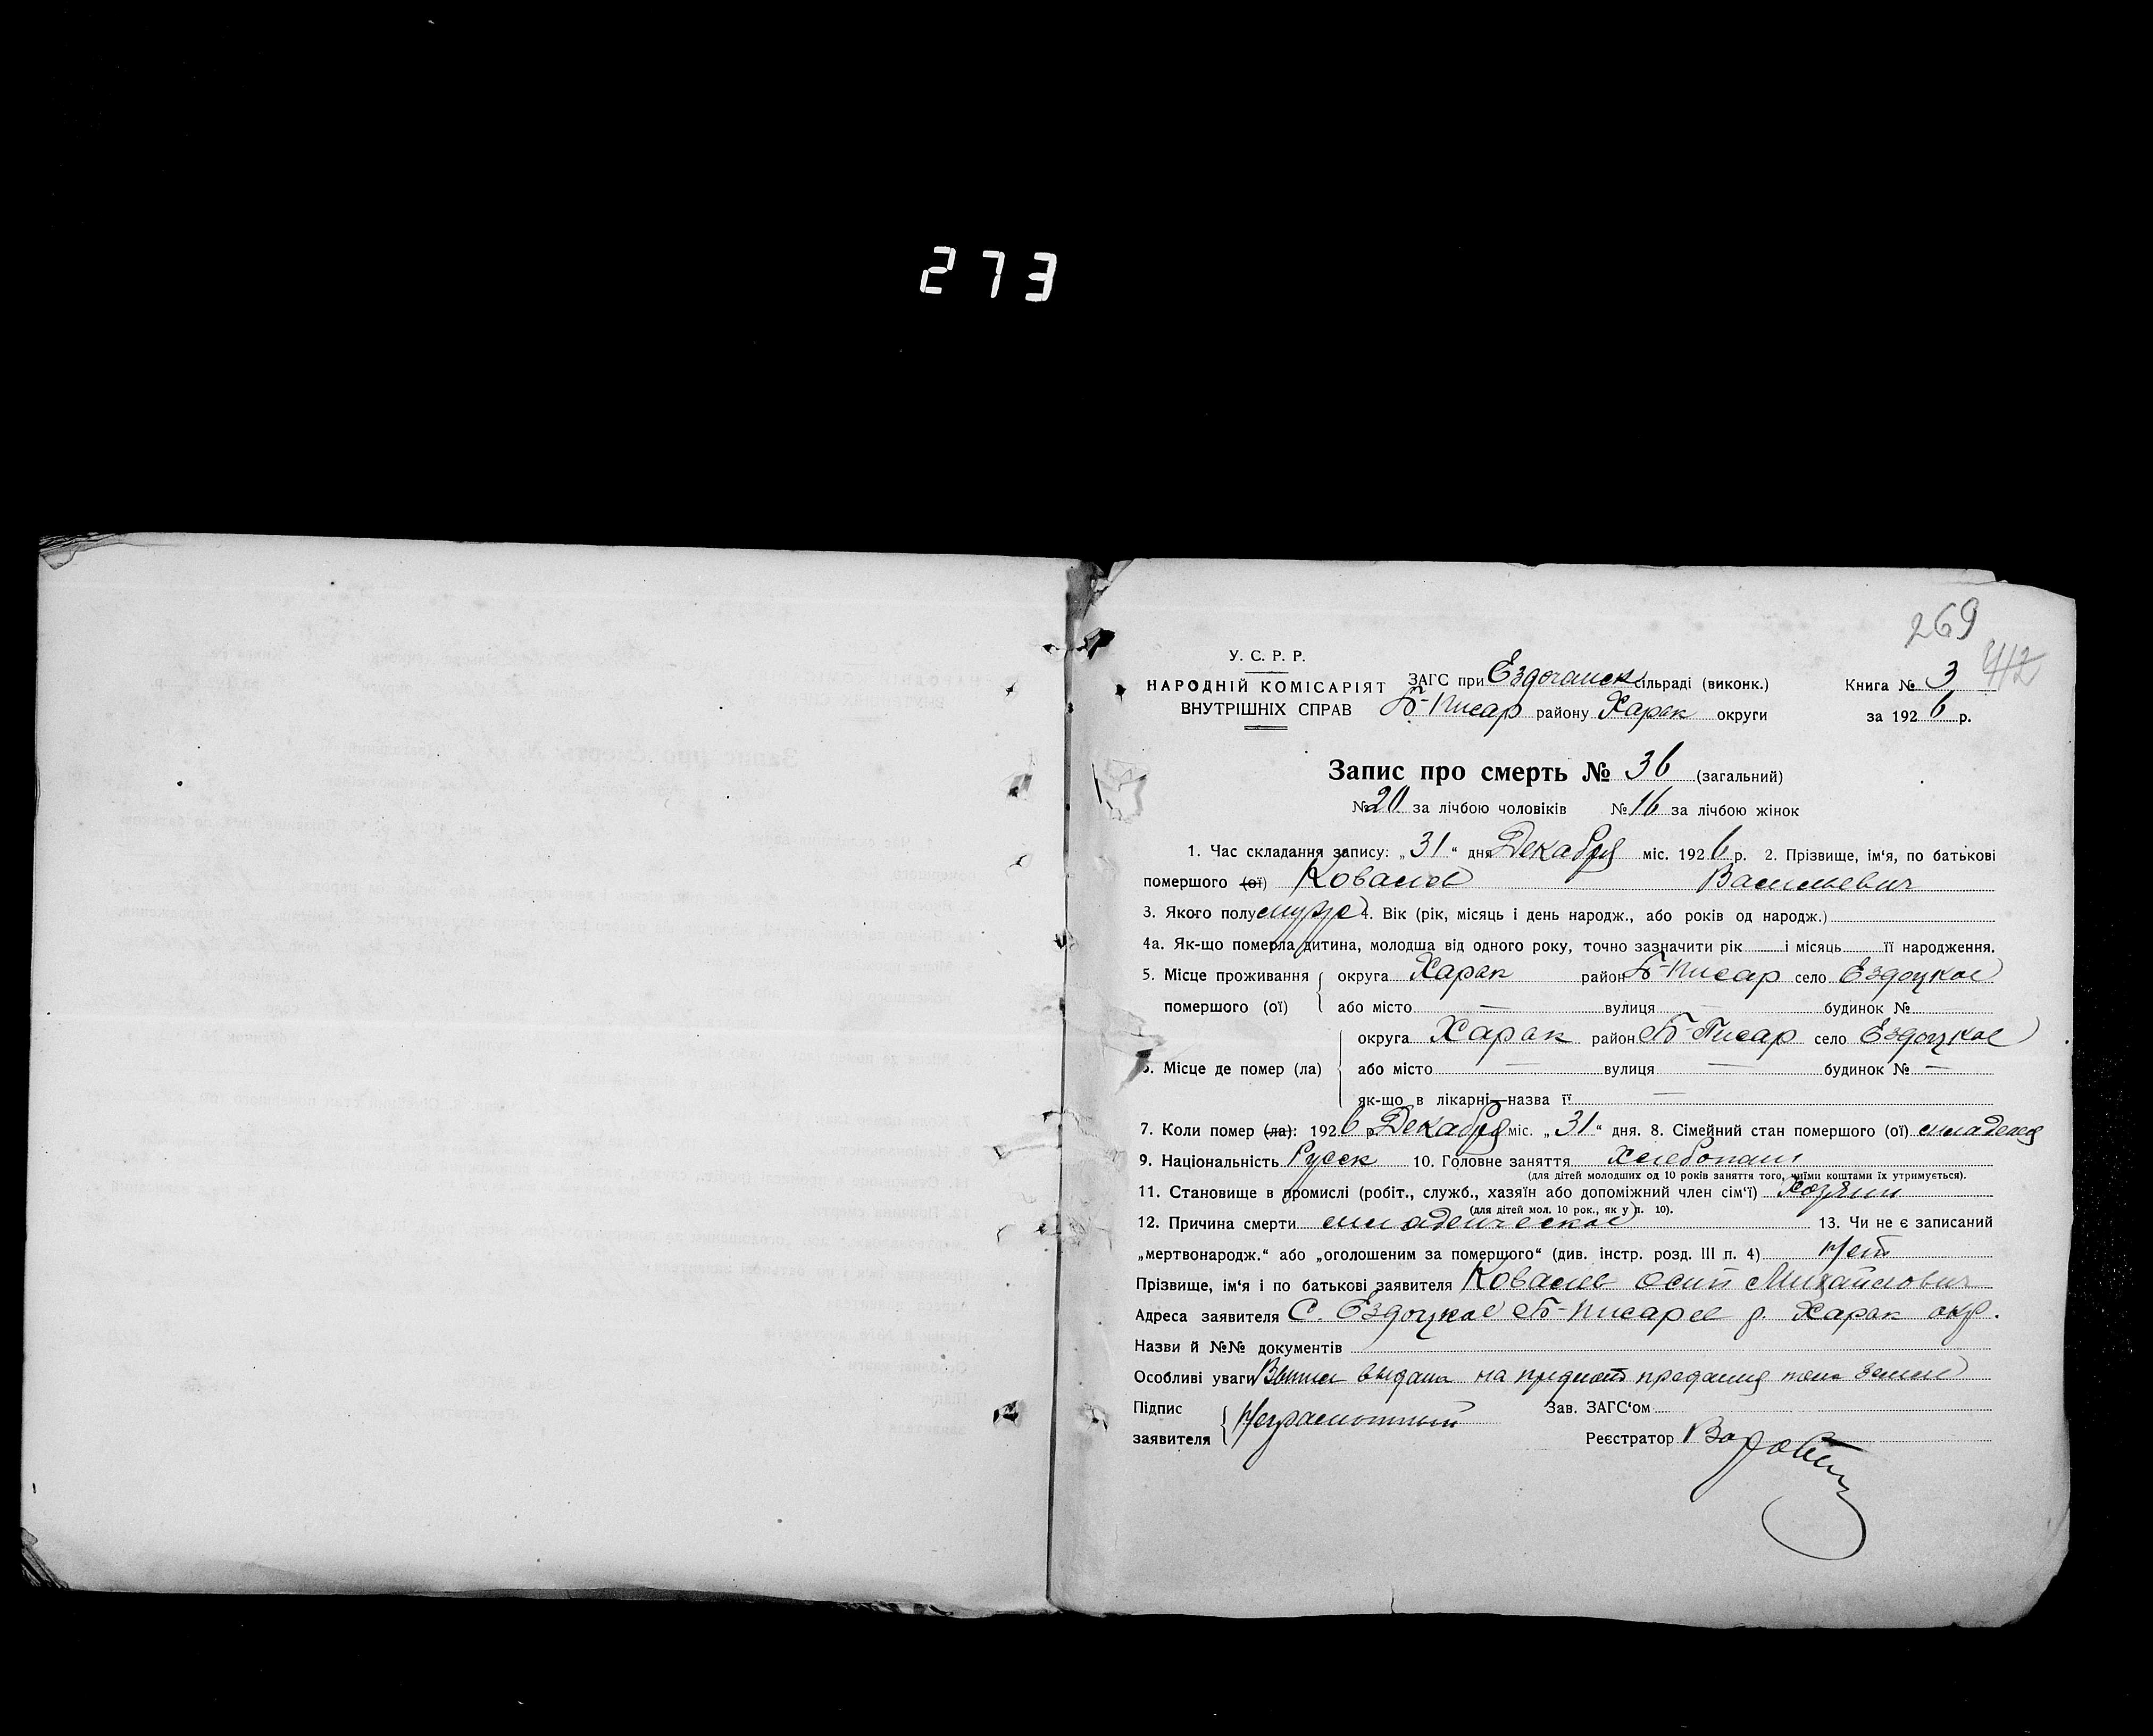 273
269
412
У. С. Р. Р.
НАРОДНІЙ КОМІСАРІЯТ
ВНУТРІШНІХ СПРАВ
ЗАГС при Ездочанск сільраді (виконк.)
Б-Писар району Харьк округи
Книга № 3
за 1926 р.
Запис про смерть № 36 (загальний)
№ 20 за лічбою чоловіків № 16 за лічбою жінок
1. Час складання запису: „31“ дня Декабря міс. 1926 р. 2. Прізвище, ім'я, по батькові
помершого (ої) Ковалев Васильевич
3. Якого полу 4. Вік (рік, місяць і день народж., або років од народж.)
4а. Як-що померла дитина, молодша від одного року, точно зазначити рік і місяць її народження.
5. Місце проживання помершого (ої) округа Харьк район Б-Писар село Ездоцкое
або місто — вулиця — будинок №
6. Місце де помер (ла) округа Харьк район Б-Писар село Ездоцкое
або місто — вулиця — будинок № —
як-що в лікарні—назва її —
7. Коли помер (ла): 1926 р. Декабря міс. „31“ дня. 8. Сімейний стан помершого (ої) младенец
9. Національність Русск 10. Головне заняття Хлебопаш
(для дітей молодших од 10 років заняття того, чиїми коштами їх утримується).
11. Становище в промислі (робіт., служб., хазяїн або допоміжний член сім'ї) Хозяин
(для дітей мол. 10 рок., як у п. 10).
12. Причина смерти младенческая 13. Чи не є записаний
„мертвонародж.“ або „оголошеним за помершого“ (див. інстр. розд. III п. 4) Нет
Прізвище, ім'я і по батькові заявителя Ковалев Осип Михайлович
Адреса заявителя С. Ездоцкое Б-Писарев р. Харьк окр.
Назви й №№ документів
Особливі уваги выдана на предмет предания тела земле
Підпис заявителя Неграмотный
Зав. ЗАГС'ом
Реєстратор